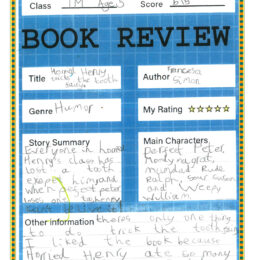 Class 1M Age 5 Score
BOOK REVIEW
Title Horrid Henry
tricks the tooth
fairy
Author Francesca
Simon
Genre Humor.
My Rating ☆☆☆☆☆
Story Summary
Everyone in Horrid
Henry's class has
lost a tooth
exept him and
when perfect peter
loses one
Main Characters
perfect Peter,
Moody margret,
Rude
Ralph, Sour Susan
and Weepy
William.
Other information theres only one thing
to do trick the tooth
I liked the book because
Horrid Henry ate so many